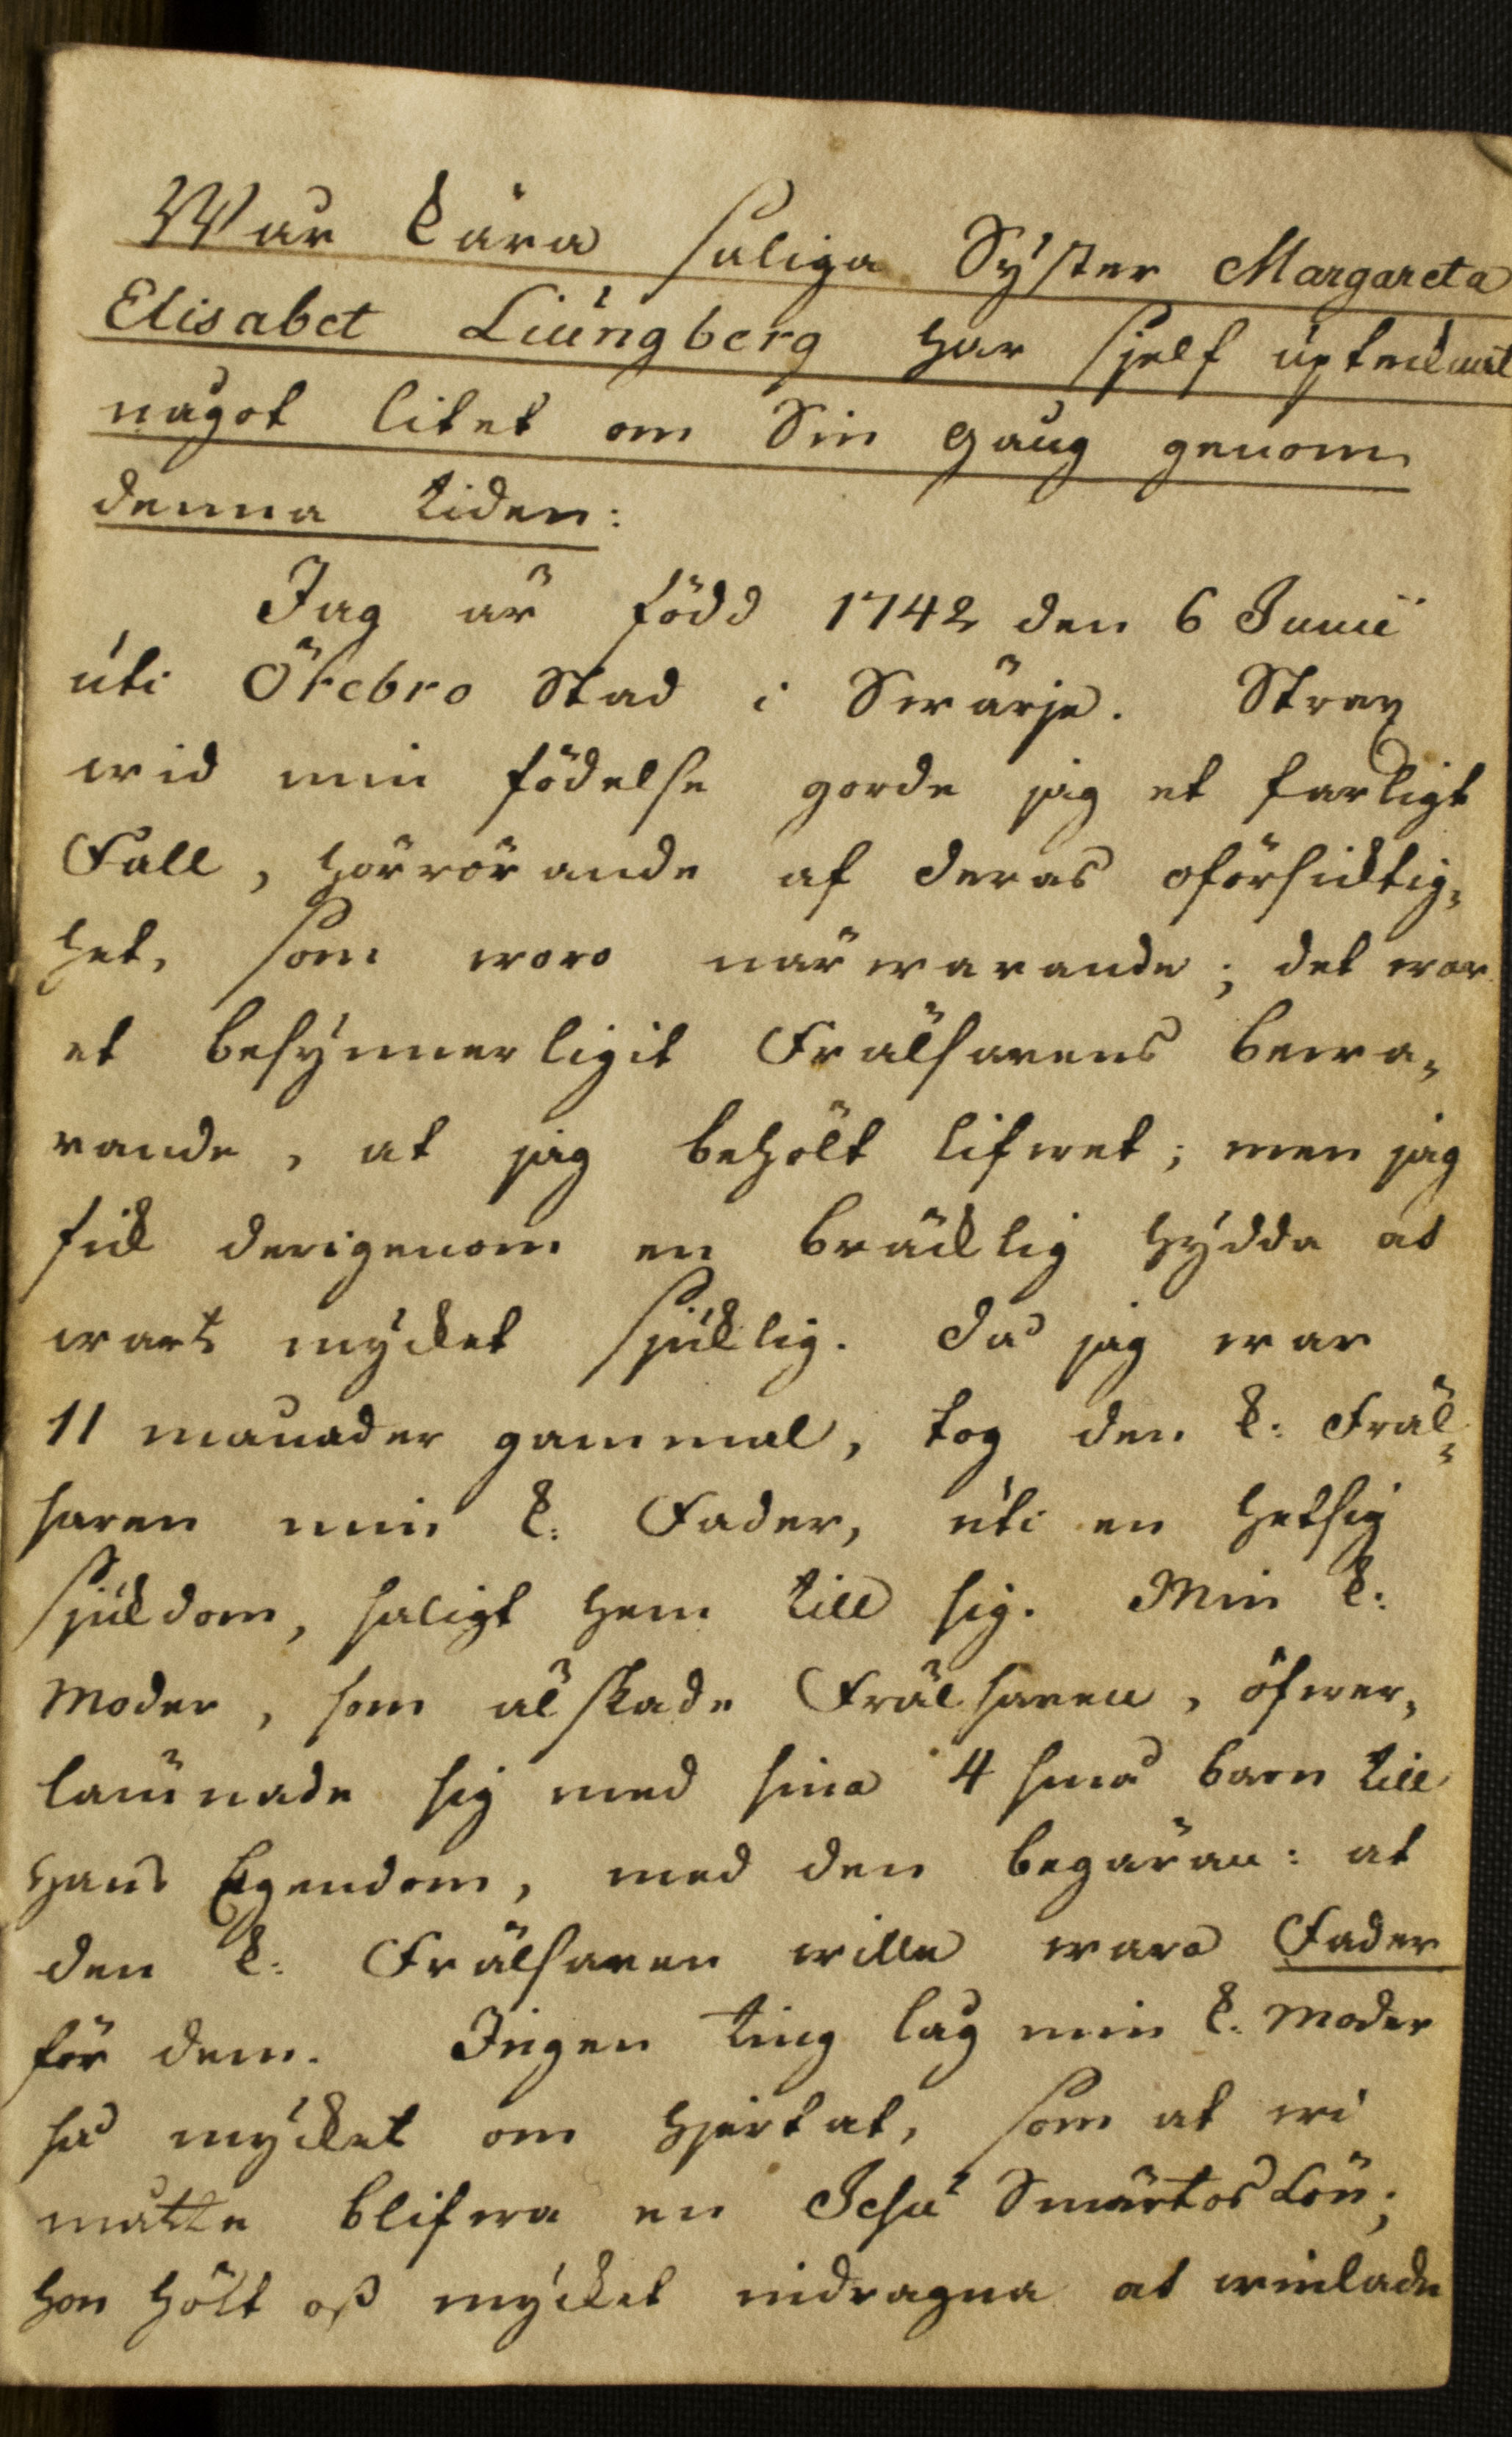 Wår kära saliga Syster Margareta
Elisabet Liungberg har sjelf uptecknat
något litet om Sin gång genom
denna tiden:
Jag är född 1742 den 6 Junii
uti Örebro Stad i Swärje. Strax
wid min födelse gorde jag et farligt
Fall, härrörande af deras oförsicktig=
het, som woro närwarande; det war
et besynnerligit Frälsarens bewa=
rande, at jag behölt lifwet; men jag
fick derigenom en bräcklig hydda at
wart mycket sjücklig. Då jag war
11 månader gammal, tog den k: Fräl=
saren min k: Fader, uti en hetsig
sjuckdom, saligt hem till sig. Min k:
Moder, som älskade Frälsaren, öfwer=
lämnade sig med sina 4 små barn till
Hans Egendom, med den begäran: at
den k: Frälsaren wille wara Fader
för dem. Ingen ting låg min k: Moder
så mycket om hjertat, som at wi
måtte blifwa en Jesu Smärtos Lön;
hon hölt oß mycket indragna at